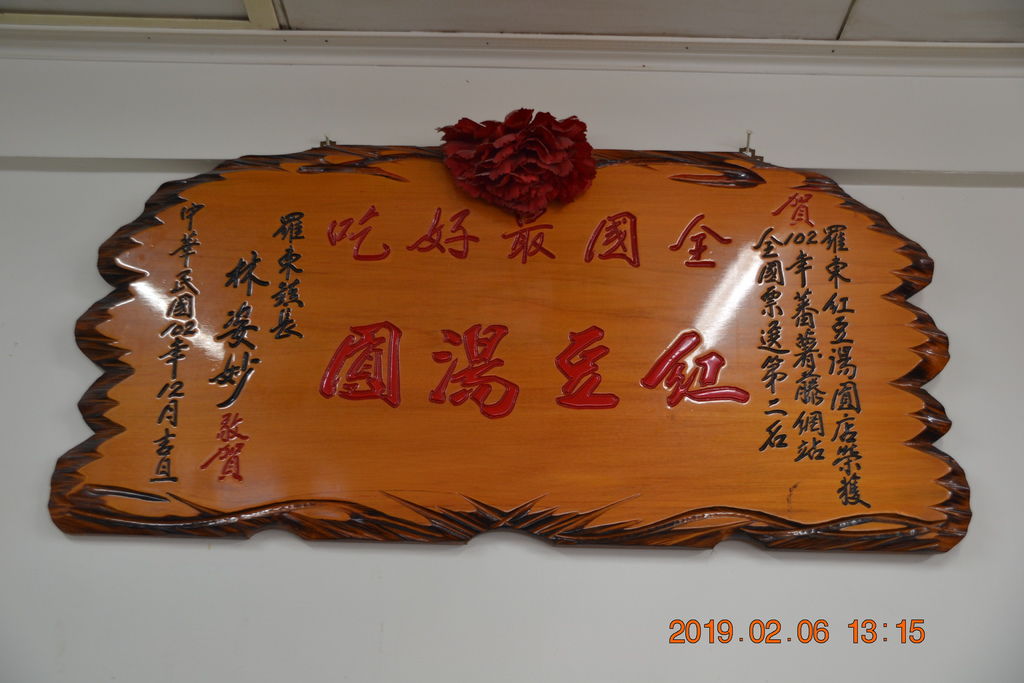 賀
羅東紅豆湯圓店榮獲
102年蕃薯藤網站
全國票選第二名
全國最好吃
紅豆湯圓
羅東鎮長
林姿妙
敬賀
中華民國102年12月吉旦
2019.02.06 13:15